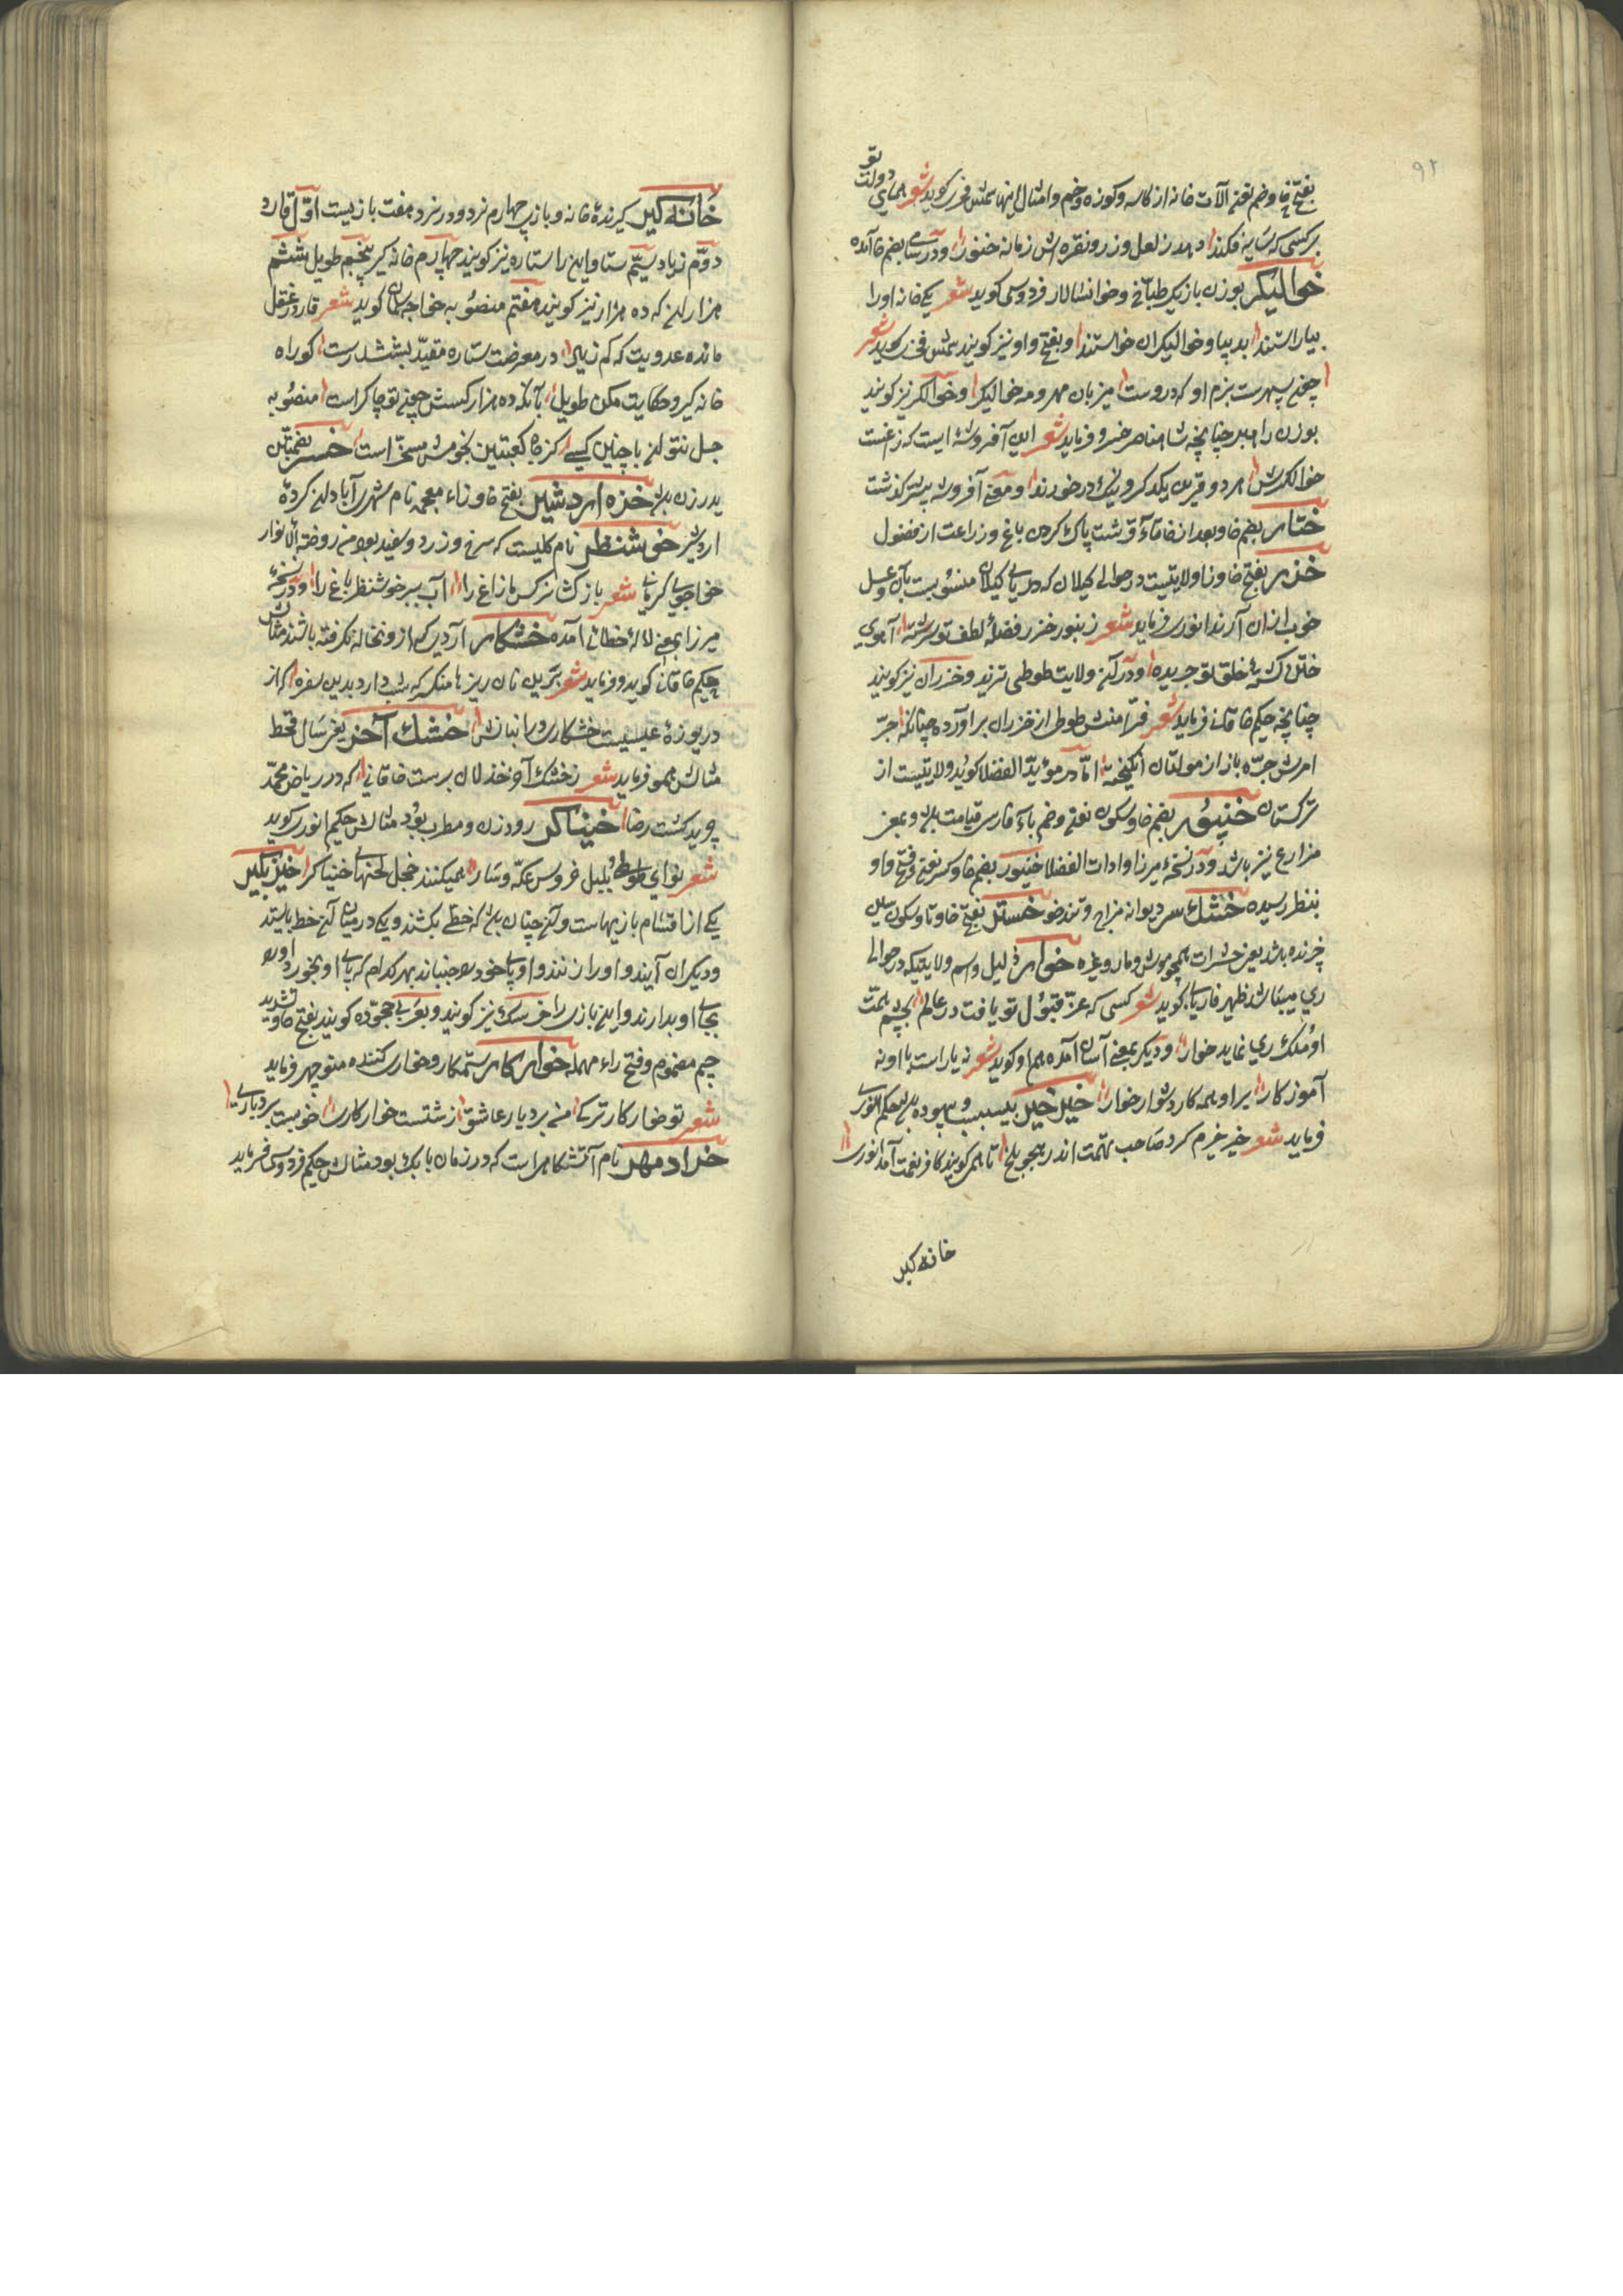 ۹۲
بفتح خا و ضم نون آلات خانه از کاسه و کوزه و خم و امثال اینها شمس فخری کوید شعر همای دولت تو
بر کسی که سایه فکند دهد ز لعل و زر و نقره اش زمانه خنور و در سامی بضم خا آمده
خوالیکر بوزن بازیکر طباخ و خوانسالار فردوسی کوید شعر یکی خانه او را
بیاراستند بدیبا و خوالیکران خواستند و بفتح واو نیز کویند شمس فخری کوید شعر
چنین سپهرست بزم او که دروست میزبان مهر و مه خوالیکر و خوالکر نیز کویند
بوزن رامبر چنانچه شاه ناصر خسرو فرماید شعر این آفروشه ایست که زاغست
خوالکرش هر دو قرین یکدکر و نیک درخورند و معنی آفروشه پیشتر کذشت
ختار بضم خا و بعد از خا تاء قرشت پاک کردن باغ و زراعت از فضول
خزر بفتح خا و زا ولایتیست در حوالی کیلان که دریای کیلان منسوبست بآن و عسل
خوب از آن آرند انوری فرماید شعر زنبور خزر فضلهٔ لطف تو سرشته آهوی
ختن کشتهٔ خلق تو چریده و در آن ولایت طوطی نزند و خزران نیز کویند
چنانچه حکیم خاقانی فرماید شعر فرامنش طوطی از خزران برآورده چنانکه جر
امرش جره باز از مولتان انکیخته اما در مؤید الفضلا کوید ولایتیست از
ترکستان خنیور بضم خا و سکون نون و ضم یاء فارسی قیامت باشد و بمعنی
مزارع نیز باشد و در نسخهٔ میرزا و ادات الفضلا خنیور بضم خا و کسر نون و فتح واو
بنظر رسیده خشک سر دیوانه مزاج و تندخو خستر بفتح خا و تا و سکون سین
خزنده باشد یعنی حشرات همچو موش و مار و غیره خوار ذلیل و اسم ولایتیکه در حوالی
ری میباشد ظهیر فاریابی کوید شعر کسی که عز قبول تو یافت در عالم بچشم همت
او ملک ری نماید خوار و دیکر بمعنی آسان آمده هم او کوید شعر نه یار است با او نه
آموزکار برو همه کار دشوار خوار خیرخیر بیسبب و بیهوده باشد حکیم انوری
فرماید شعر خیرخیرم کرد صاحب تهمت اندر هجو بلخ تا همی کویند کافر نعمت آمد انوری
خانه کیر
خانه کیر کیرندهٔ خانه و بازی چهارم نرد و در نرد هفت بازیست اول فارد
دوم زیاد سیم ستا و این را ستاره نیز کویند چهارم خانه کیر پنجم طویل ششم
هزاران که ده هزار نیز کویند هفتم منصوبه خواجه سلمان کوید شعر فارد عقل
مانده عدویت که کم زیاد در معرضت ستاره مقید بششدرست کو راه
خانه کیر و حکایت مکن طویل با آنکه ده هزار کسش چون تو چاکر است منصوبه
جدل نتوان با چنین کسی کز جا کعبتین نحوس مسخر است خسر بضمتین
پدر زن باشد خزه اردشیر بفتح خا و زاء معجمه نام شهری آبادان کردهٔ
اردشیر خوش نظر نام کلیست که سرخ و زرد و سفید بود من روضة الانوار
خواجوی کرمانی شعر باز کشا نرکس مازاغ را آب ببر خوشنظر باغ را و در نسخهٔ
میرزا بمعنی لالهٔ خطائی آمده خشکار آردی که از و نخاله نکرفته باشند مثالش
حکیم خاقانی کوید و فرماید شعر بترین نان ریزها منکر که شب دارد بدین سفره که از
دریوزهٔ عیسیست خشکاری در انبانش خشک آخر یعنی سال قحط
مثالش همو فرماید شعر ز خشک آخر خذلان برست خاقانی که در ریاض محمد
چرید کشت رضا خنیاکر رود زن و مطرب بود مثالش حکیم انوری کوید
شعر نوای طوطی و بلبل خروس عکه و سار همیکنند خجل لحنهای خنیاکر خیز بکیر
یکی از اقسام بازیهاست و آن چنان باشد که خطی بکشند و یکی در میان آن خط بایستد
و دیکران آیند و او را زنند و او پای خود بجنباند بهر کدام که پای او بخورد او را
بجای او بدارند و این بازی را خرسک نیز کویند و بعربی حجوره کویند بفتح حا و تشدید
جیم مضموم و فتح راء مهمله خوار کار ستمکار و خواری کننده منوچهر فرماید
شعر تو خوار کار ترکی من بردبار عاشق زشتست خوار کاری خوبست بردباری
خرادمهر نام آتشکاهی است که در زمان بابک بود مثالش حکیم فردوسی فرماید